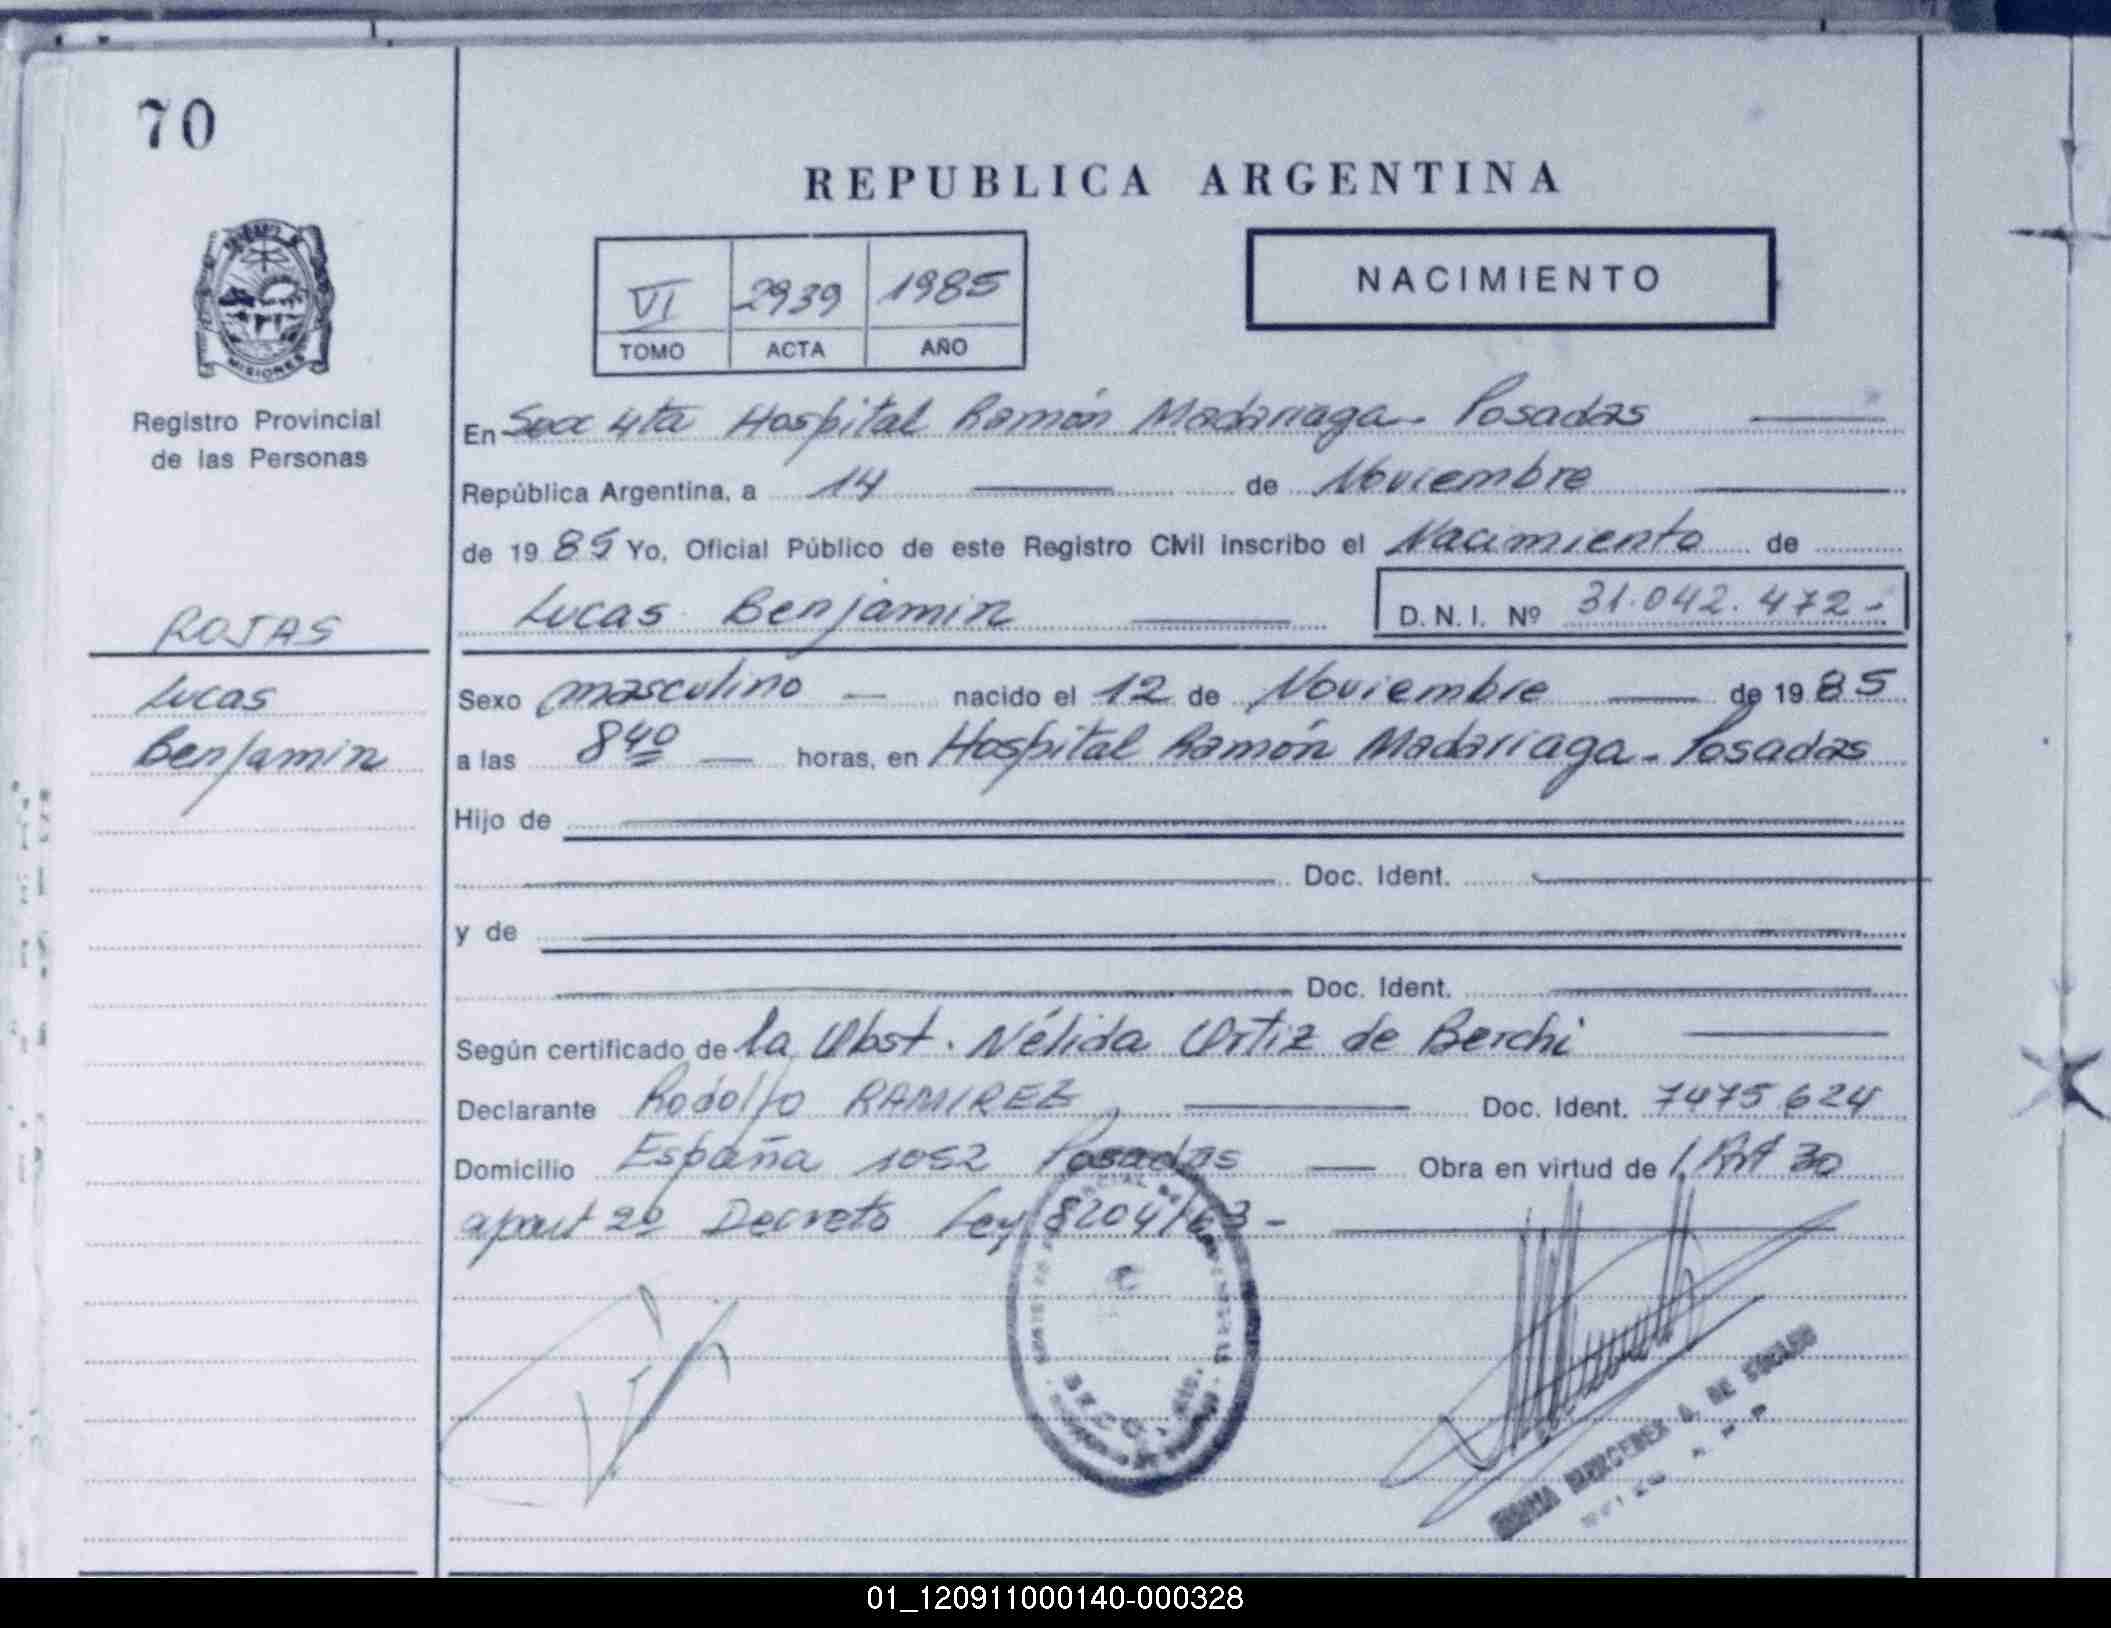 70
REPUBLICA ARGENTINA
VI 2939 1985
TOMO ACTA AÑO
NACIMIENTO
MISIONES
Registro Provincial
de las Personas
ROJAS
Lucas
Benjamin
En Secc 4ta Hospital Ramón Madariaga - Posadas
República Argentina, a 14 de Noviembre
de 19 85 Yo, Oficial Público de este Registro Civil inscribo el Nacimiento de
Lucas Benjamin D.N.I. Nº 31.042.472.-
Sexo masculino nacido el 12 de Noviembre de 19 85
a las 8 40 horas, en Hospital Ramón Madariaga - Posadas
Hijo de
Doc. Ident.
y de
Doc. Ident.
Según certificado de la Obst. Nélida Ortiz de Berchi
Declarante Rodolfo RAMIREZ, Doc. Ident. 7475624
Domicilio España 1052 Posadas Obra en virtud de Art 30
apart 2º Decreto Ley 8204/63 -
MERCEDES A. DE
01_120911000140-000328